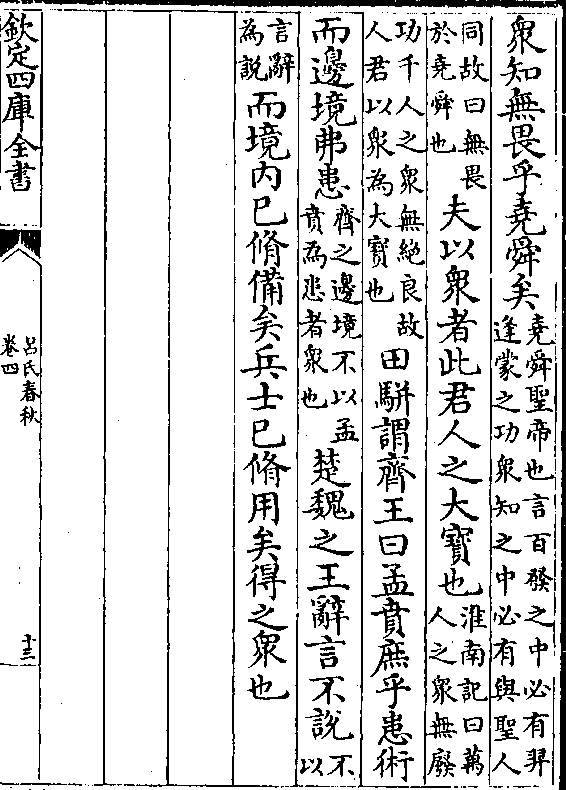 衆知無畏乎堯舜矣堯舜聖帝也言百發之中必有羿逢蒙之功衆知之中必有與聖人
同故曰無畏於堯舜也夫以衆者此君人之大寶也淮南記曰萬人之衆無廢
功千人之衆無絶良故人君以衆為大寶也田駢謂齊王曰孟賁庶乎患術
而邊境弗患齊之邊境不以孟賁為患者衆也楚魏之王辭言不說不以
言辭為說而境内已脩備矣兵士已脩用矣得之衆也
欽定四庫全書
吕氏春秋
卷四
十三